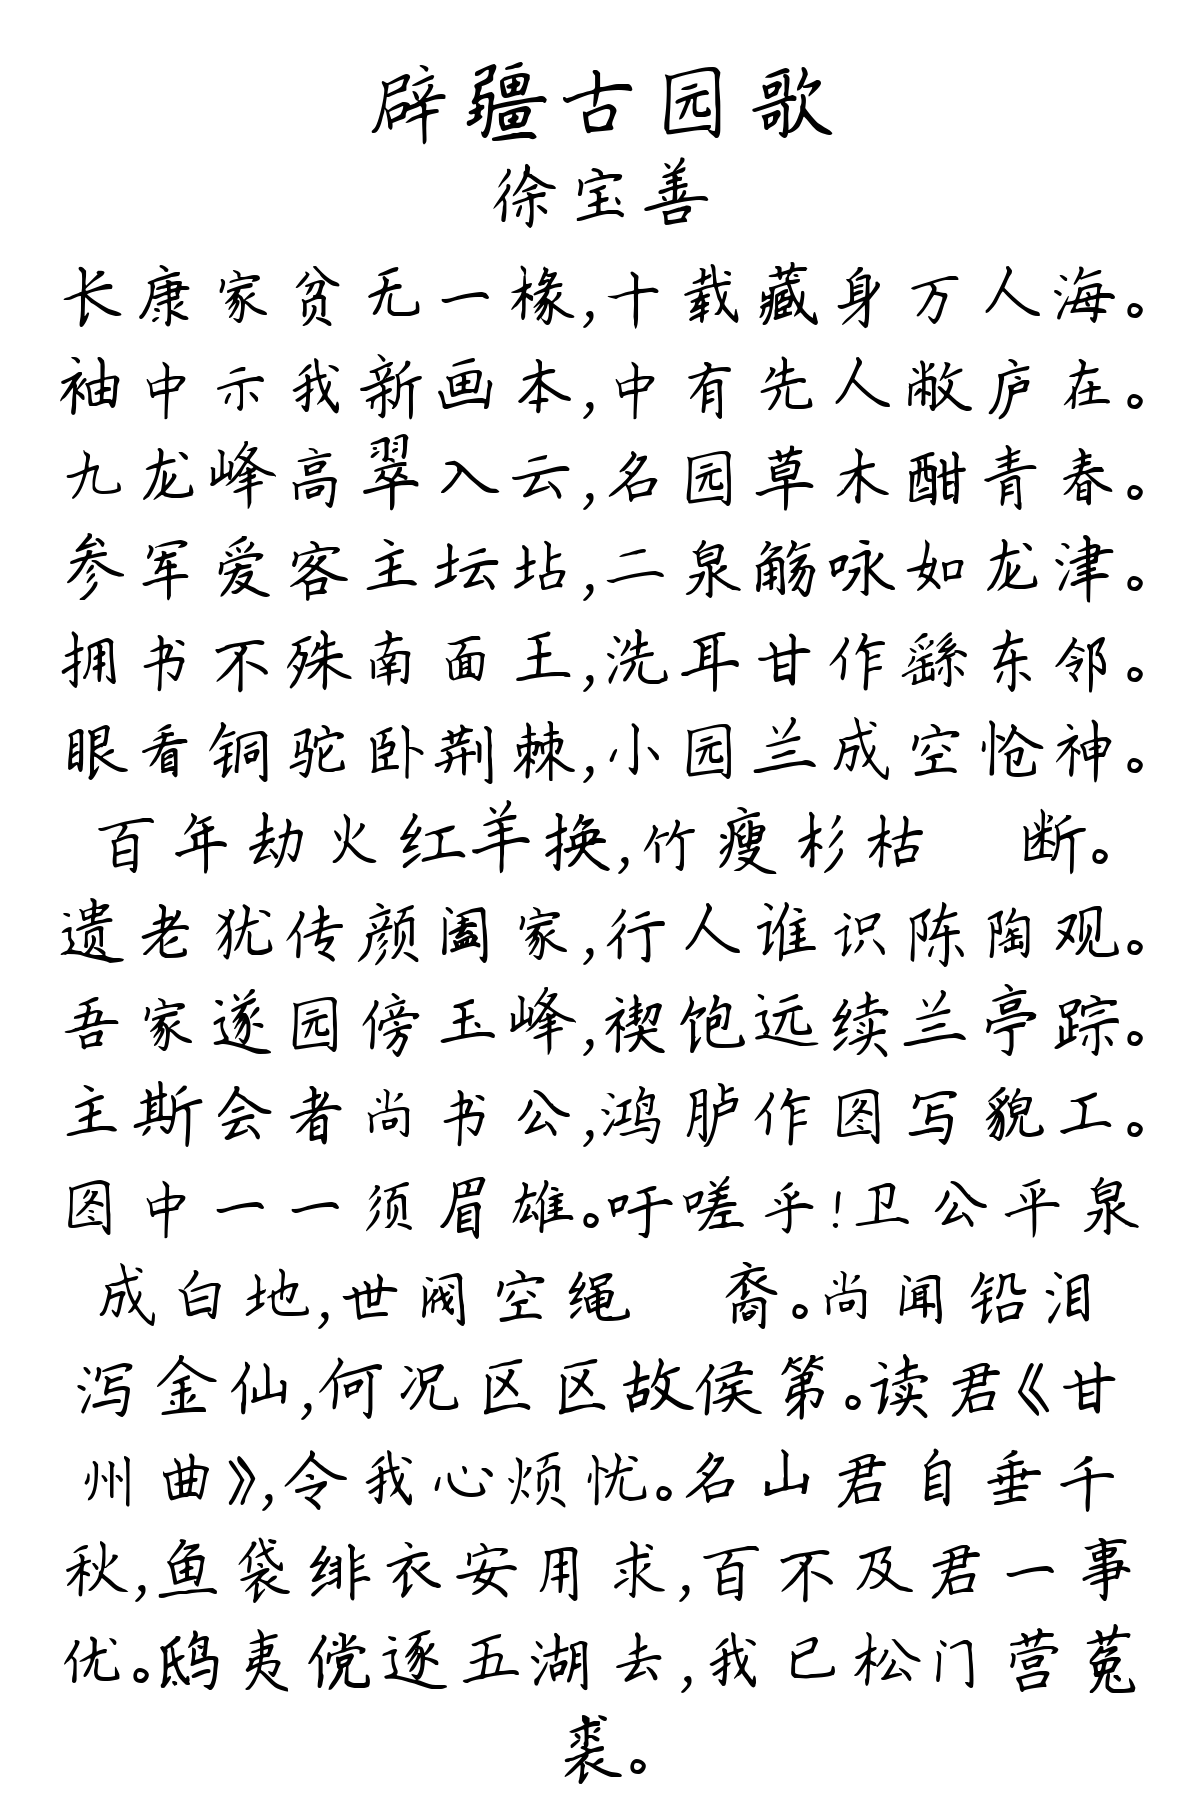 辟疆古园歌
徐宝善
长康家贫无一椽,十载藏身万人海。
袖中示我新画本,中有先人敝庐在。
九龙峰高翠入云,名园草木酣青春。
参军爱客主坛坫,二泉觞咏如龙津。
拥书不殊南面王,洗耳甘作繇东邻。
眼看铜驼卧荆棘,小园兰成空怆神。
百年劫火红羊换,竹瘦杉枯 断。
遗老犹传颜阖家,行人谁识陈陶观。
吾家遂园傍玉峰,禊饱远续兰亭踪。
主斯会者尚书公,鸿胪作图写貌工。
图中一一须眉雄。吁嗟乎!卫公平泉
成白地,世阀空绳 裔。尚闻铅泪
泻金仙,何况区区故侯第。读君《甘
州曲》,令我心烦忧。名山君自垂千
秋,鱼袋绯衣安用求,百不及君一事
优。鸱夷傥逐五湖去,我已松门营菟
裘。